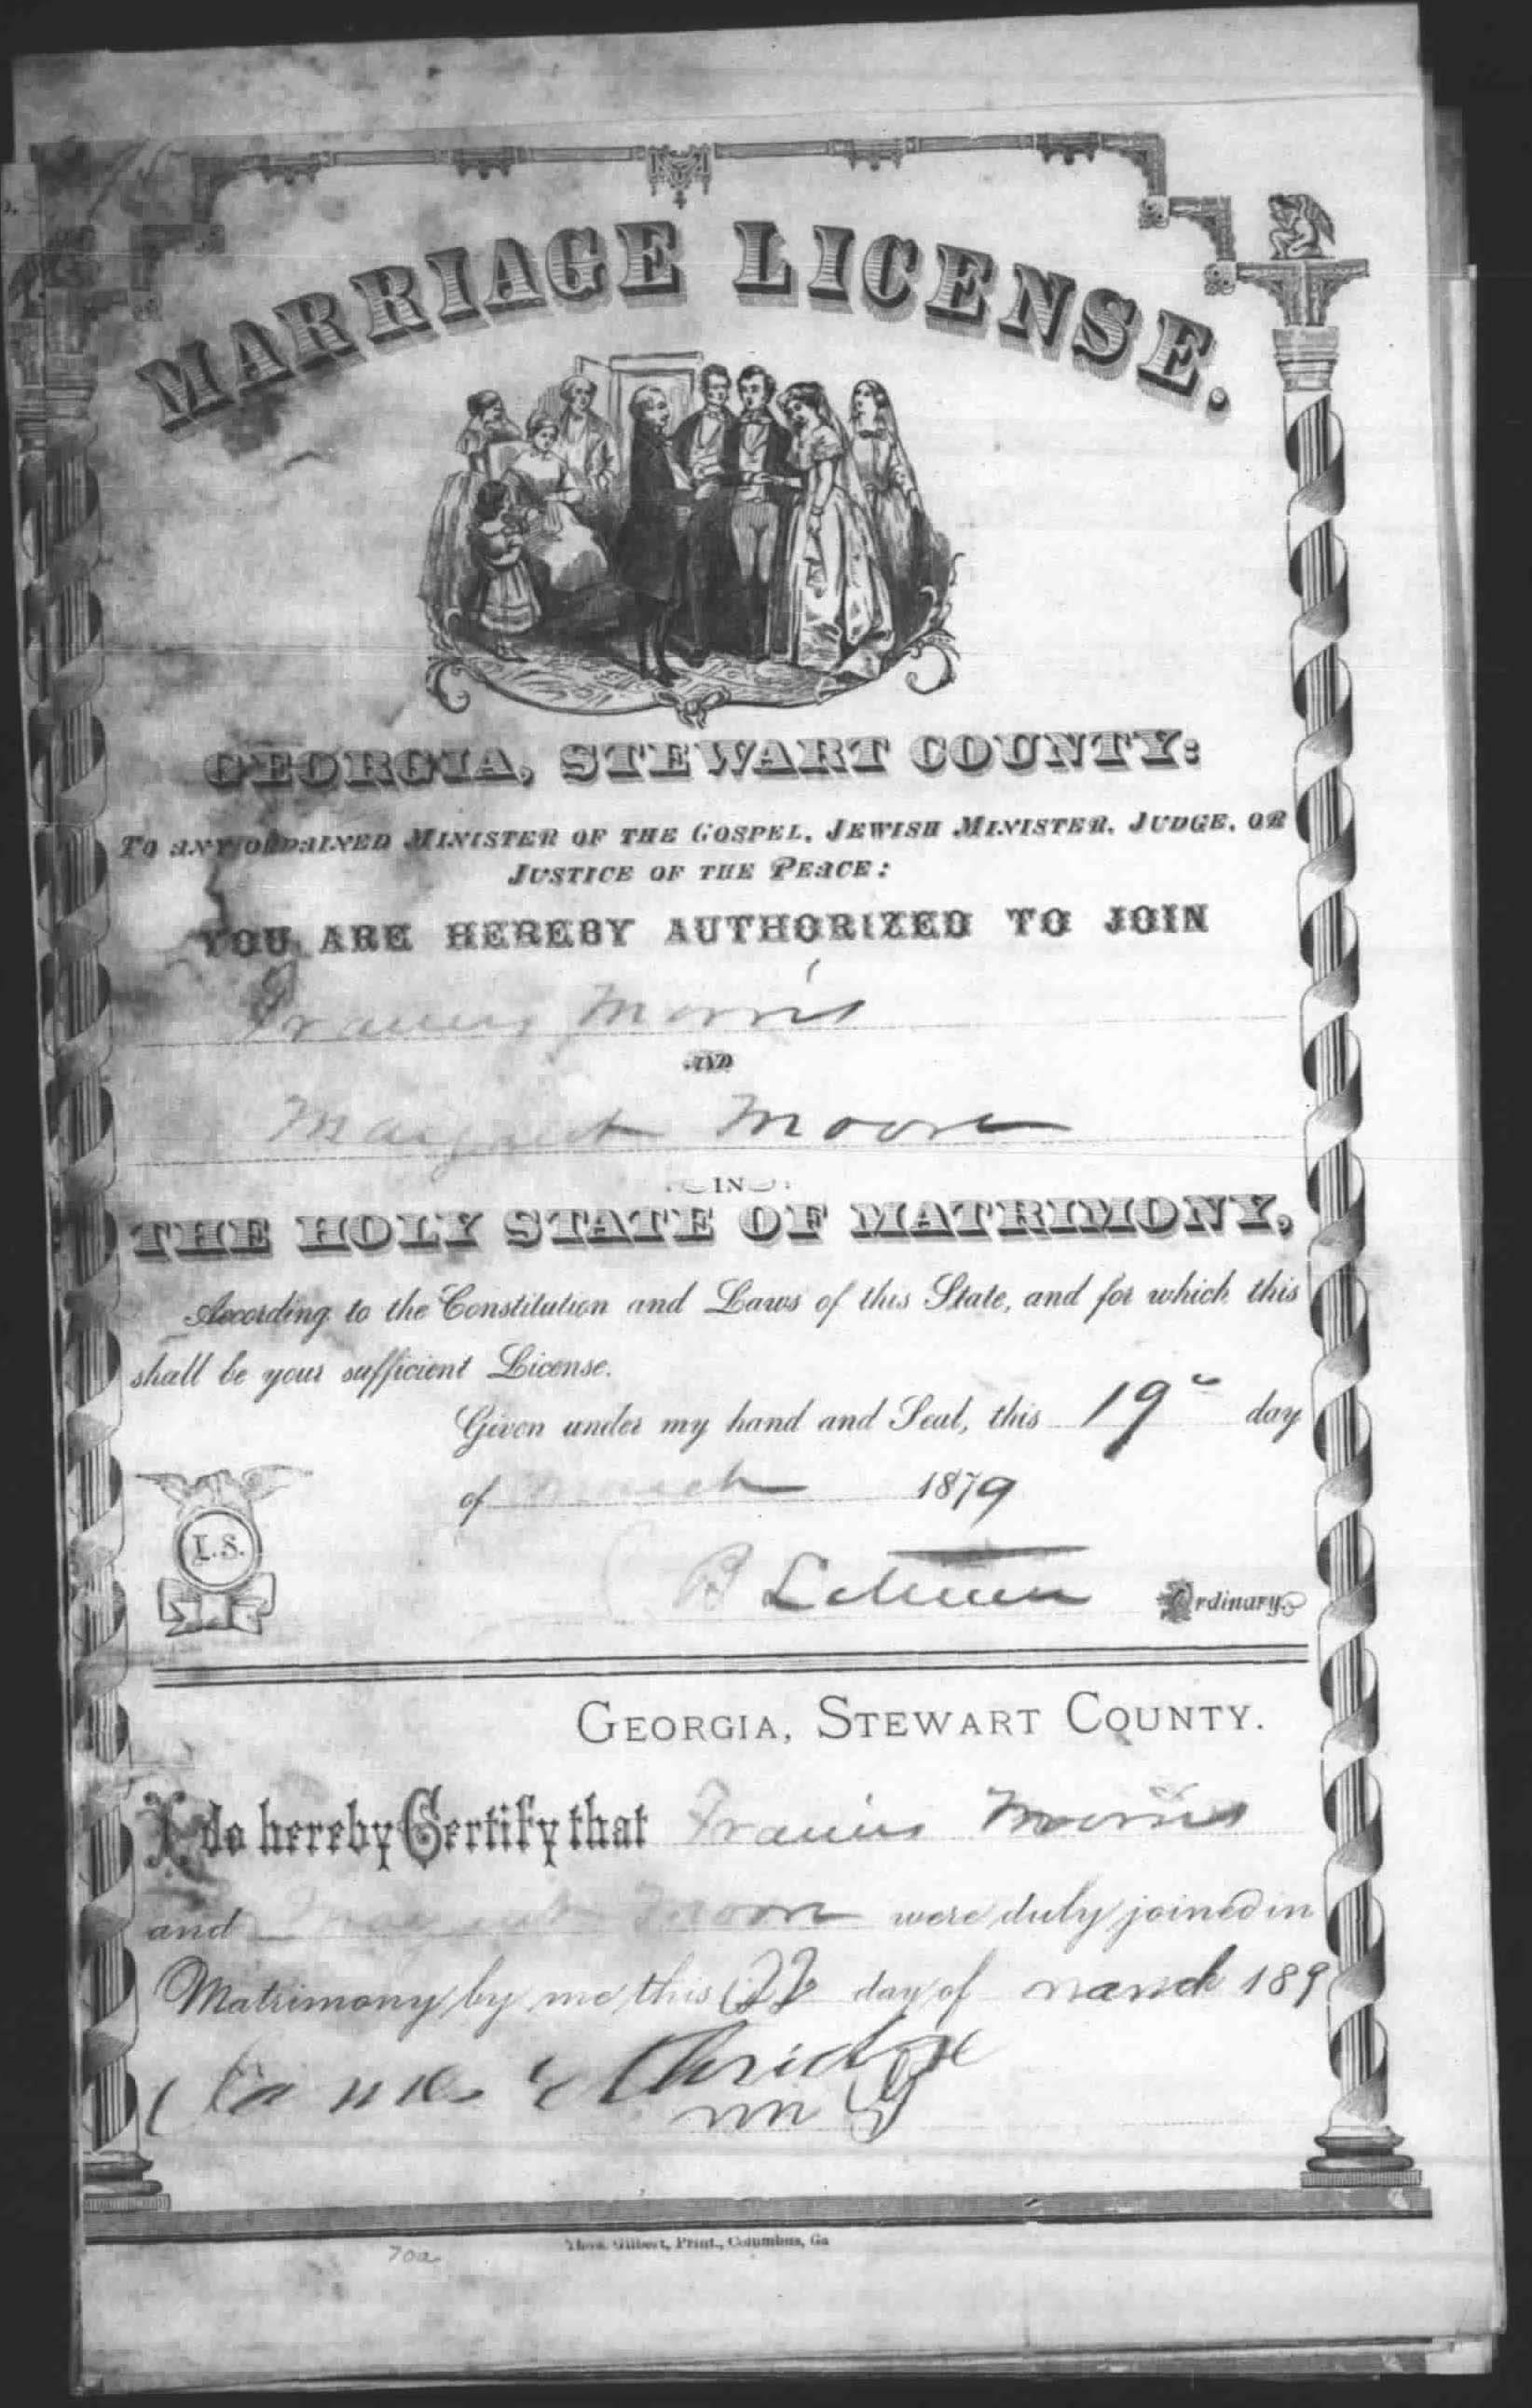 MARRIAGE LICENSE.
GEORGIA, STEWART COUNTY:
TO ANY ORDAINED MINISTER OF THE GOSPEL, JEWISH MINISTER, JUDGE, OR
JUSTICE OF THE PEACE:
YOU ARE HEREBY AUTHORIZED TO JOIN
Francis Morris
AND
Margaret Moore
IN
THE HOLY STATE OF MATRIMONY,
According to the Constitution and Laws of this State, and for which this
shall be your sufficient License.
Given under my hand and Seal, this 19 day
of March 1879
L.S.
Ordinary.
GEORGIA, STEWART COUNTY.
I do hereby Certify that Francis Morris
and Margaret Moore were duly joined in
Matrimony by me this 22 day of march 189
Thos. Gilbert, Print., Columbus, Ga
70a